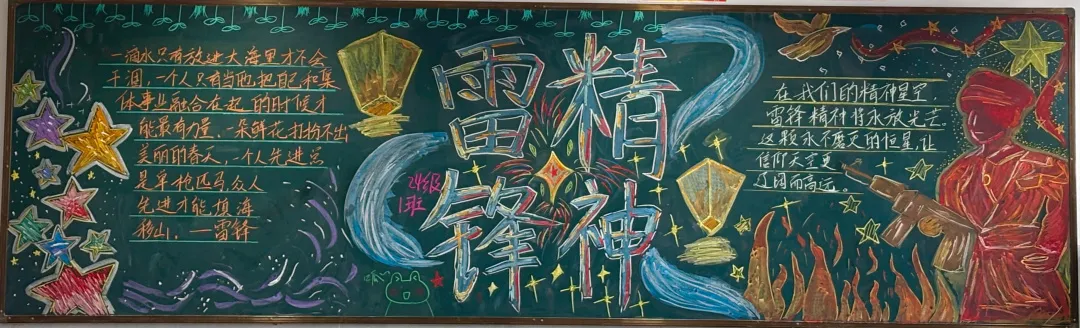 一滴水只有放进大海里才不会
干涸,一个人只有当他把自己和集
体事业融合在起 的时候才
能最有力量,一朵鲜花打扮不出
美丽的春天,一个人先进总
是单枪匹马,众人
先进才能填海
移山, —雷锋
雷锋
精神
24级
1班
在我们的精神星空,
雷锋精神将永放光芒。
这颗永不磨灭的恒星,让
信仰天空更
辽阔而高远。